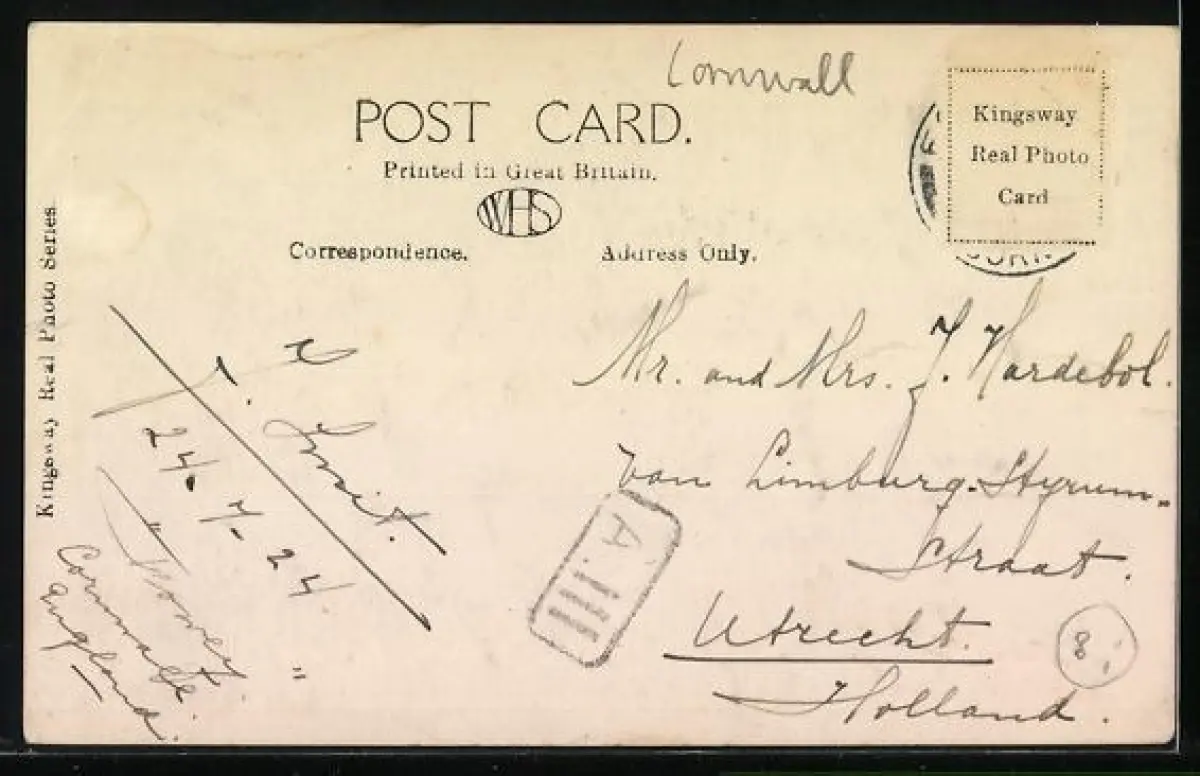 Cornwall
POST CARD.
Printed in Great Britain.
WHS
Correspondence.
Address Only.
Kingsway
Real Photo
Card
Kingsway Real Photo Series.
Mr. and Mrs. J. Hardebol.
van Limburg-Styrum-
Straat.
Utrecht.
Holland.
24.7.24
"Fowey"
Cornwall.
England.
A.
8